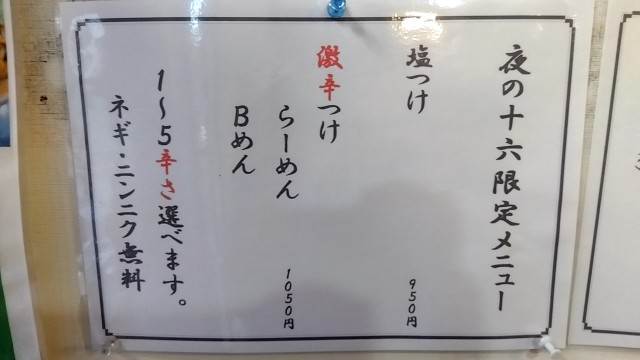 夜の十六限定メニュー
塩つけ 950円
激辛つけ
らーめん 1050円
Bめん
1〜5辛さ選べます。
ネギ・ニンニク無料